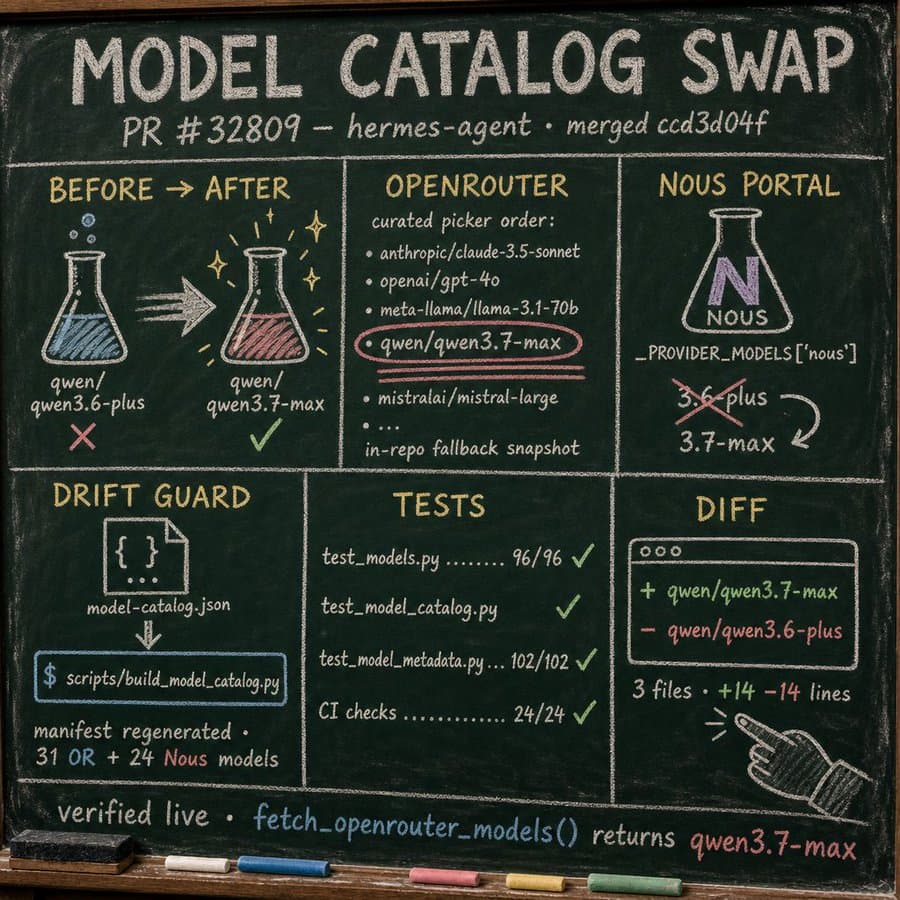 MODEL CATALOG SWAP
PR #32809 — hermes-agent • merged ccd3d04f
BEFORE → AFTER
qwen/
qwen3.6-plus
✗
qwen/
qwen3.7-max
✓
OPENROUTER
curated picker order:
• anthropic/claude-3.5-sonnet
• openai/gpt-4o
• meta-llama/llama-3.1-70b
• qwen/qwen3.7-max
• mistralai/mistral-large
• ...
in-repo fallback snapshot
NOUS PORTAL
N
NOUS
_PROVIDER_MODELS['nous']
3.6-plus
3.7-max
DRIFT GUARD
{ }
...
model-catalog.json
$ scripts/build_model_catalog.py
manifest regenerated •
31 OR + 24 Nous models
TESTS
test_models.py ........ 96/96 ✓
test_model_catalog.py ✓
test_model_metadata.py ... 102/102 ✓
CI checks ............. 24/24 ✓
DIFF
+ qwen/qwen3.7-max
− qwen/qwen3.6-plus
3 files • +14 −14 lines
verified live • fetch_openrouter_models() returns qwen3.7-max